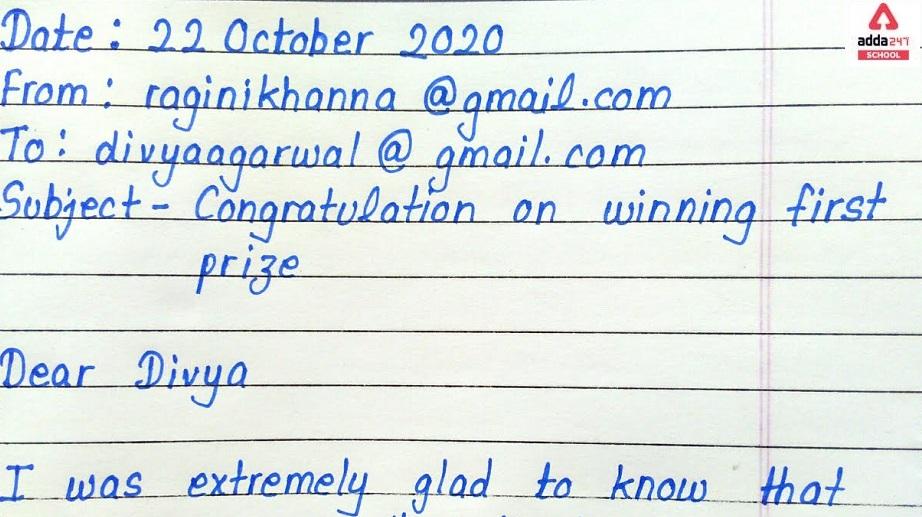 Date: 22 October 2020
adda247
SCHOOL
From: raginikhanna @gmail.com
To: divyaagarwal @ gmail. com
Subject - Congratulation on winning first
prize
Dear Divya
I was extremely glad to know that